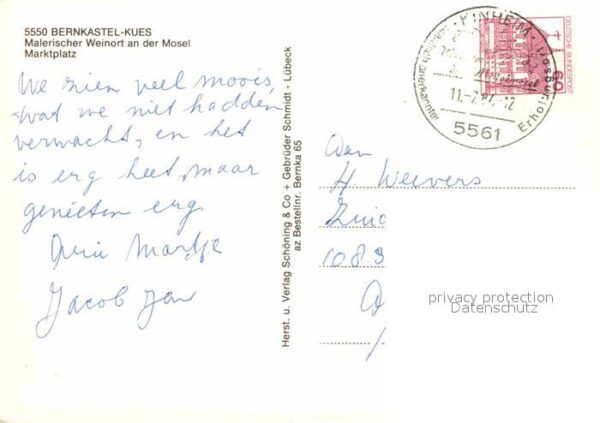 5550 BERNKASTEL-KUES
Malerischer Weinort an der Mosel
Marktplatz
We zien veel moois,
wat we niet hadden
verwacht, en het
is erg heet, maar
genieten erg.
Martje
Jacob Jan
Herst. u. Verlag Schöning & Co + Gebrüder Schmidt - Lübeck
az Bestellnr. Bernka 65
KINHEIM
11.-7.87.-12
5561
Erhol
60
DEUTSCHE BUNDESPOST
Aan
H. Weevers
Zuid
1083
privacy protection
Datenschutz